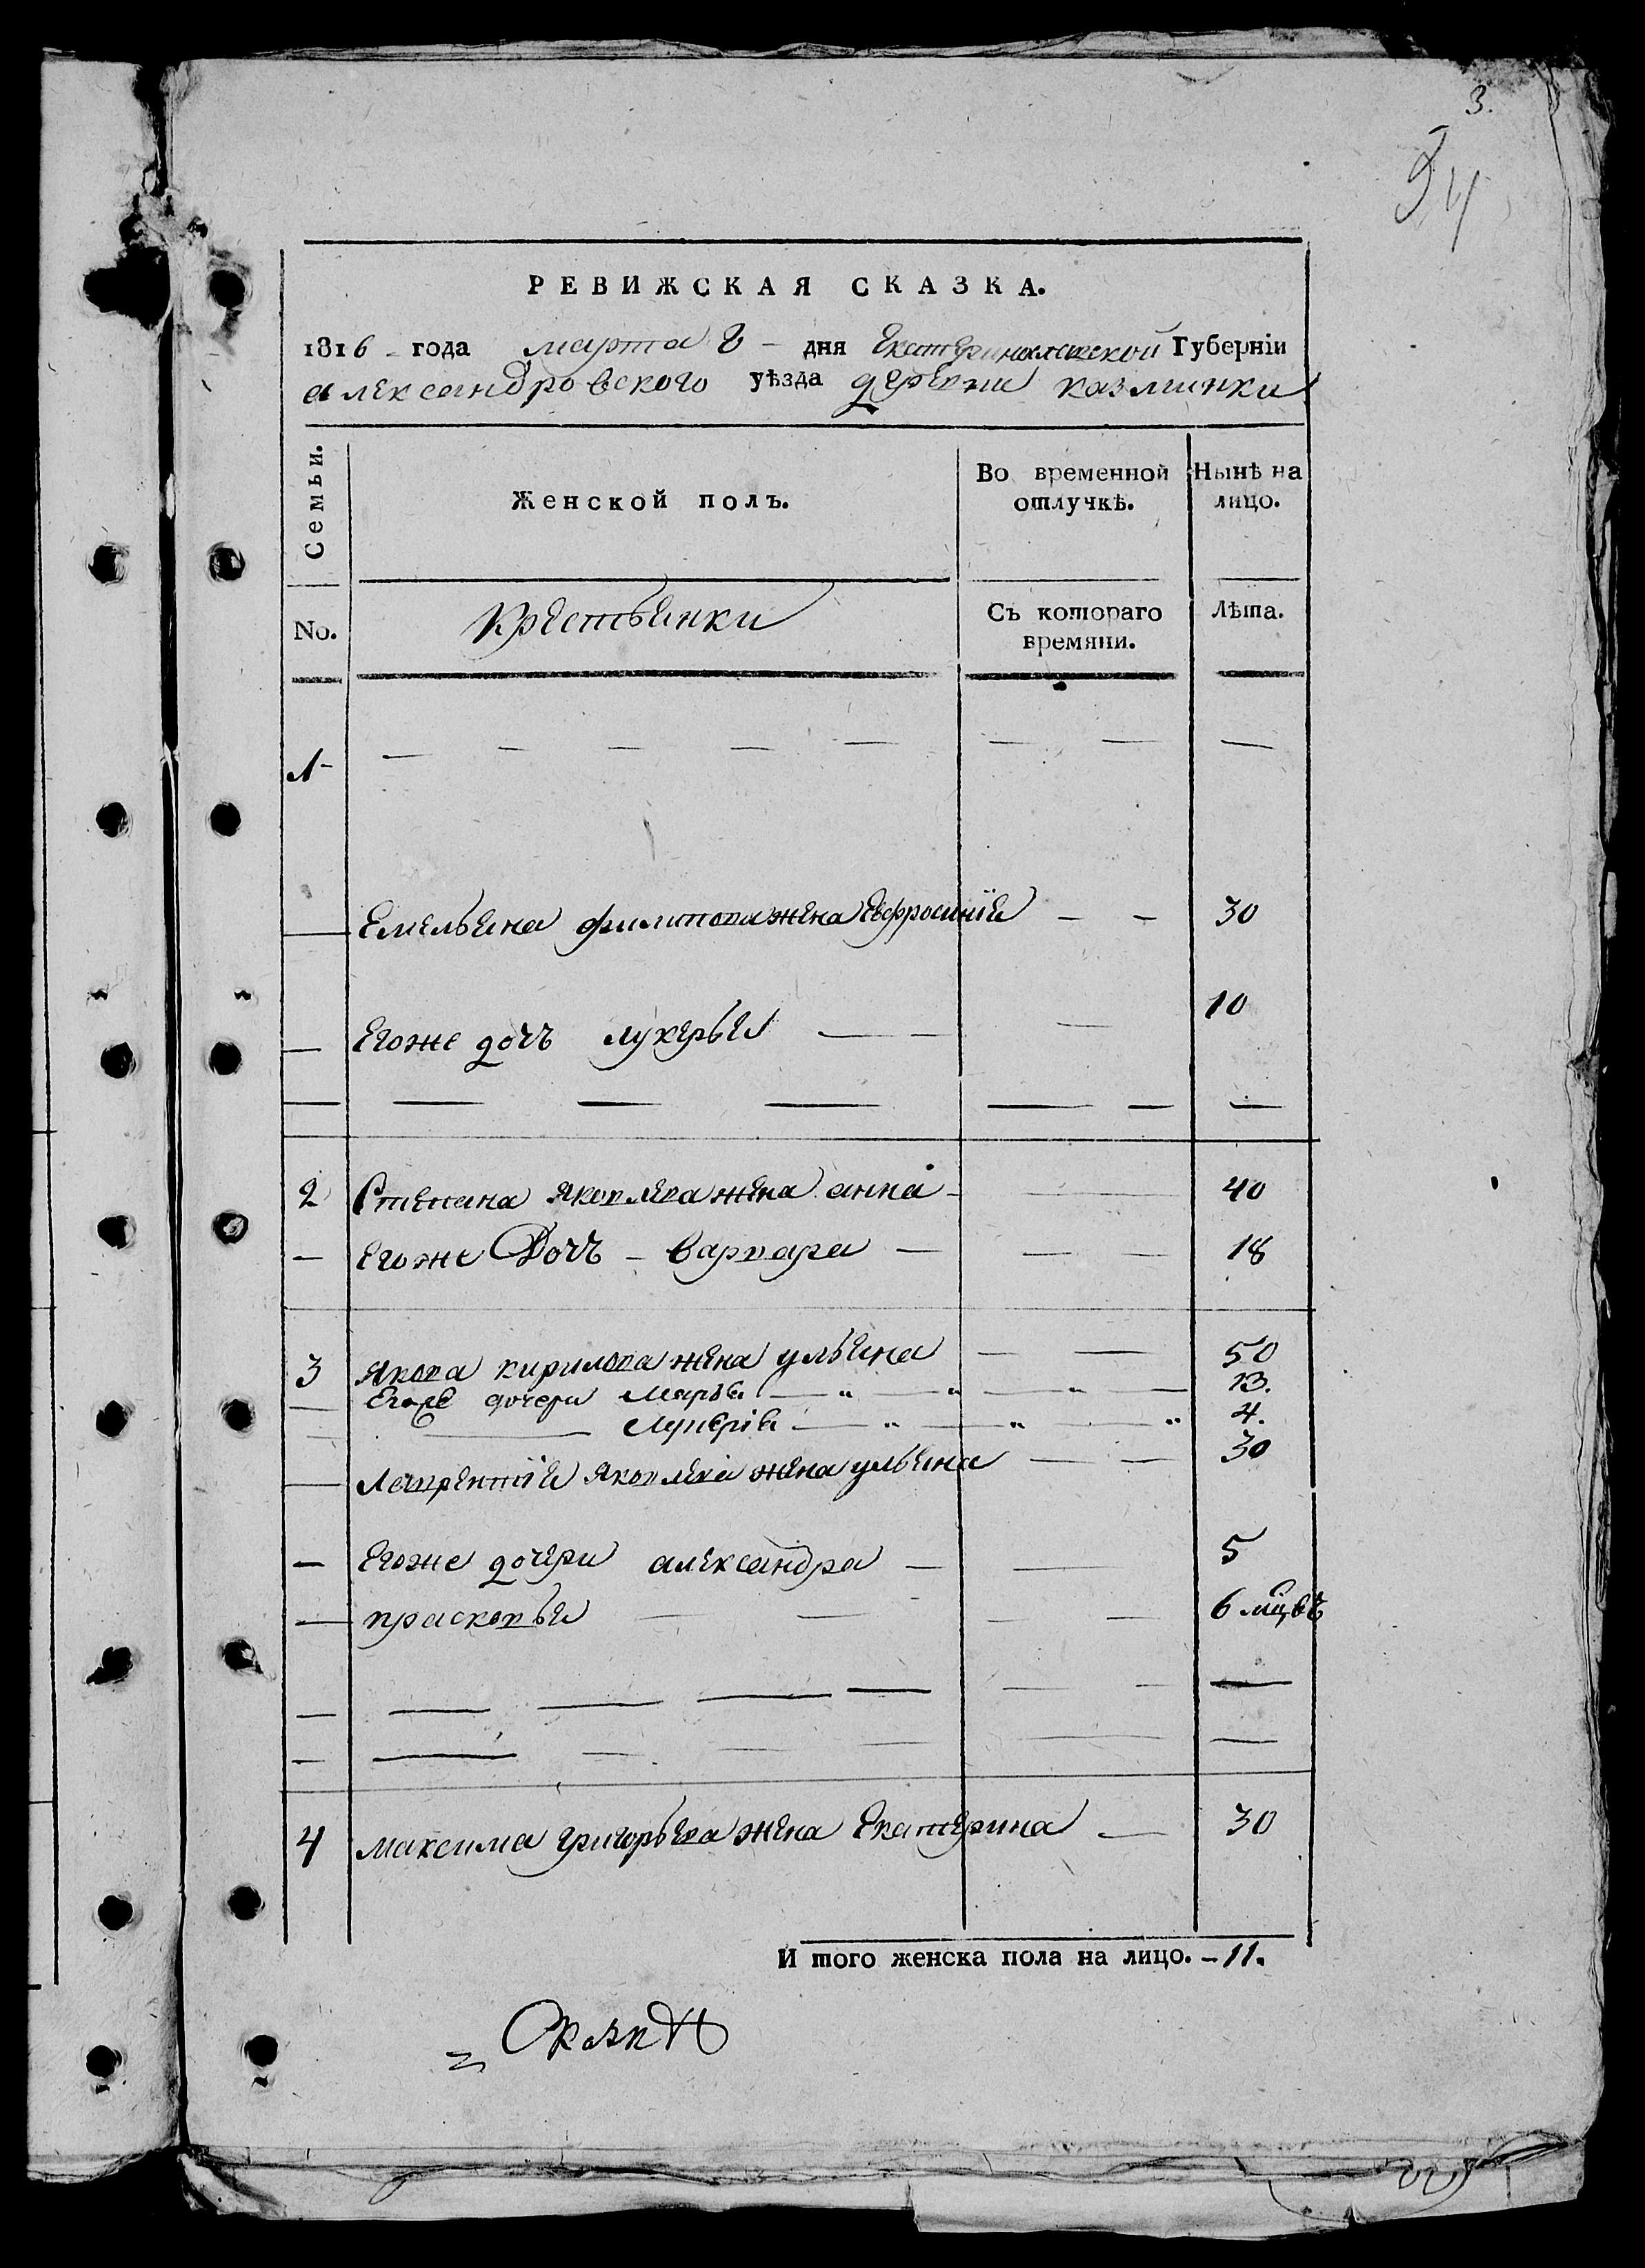 3.
РЕВИЖСКАЯ СКАЗКА.
1816 - года марта дня Екатеринославской Губернiи
александровского уѣзда деревни казминки
Семьи.
Женской полъ.
Во временной отлучкѣ.
Нынѣ на лицо.
No.
Крестьянки
Съ котораго времяни.
Лѣта.
1 - — — — — — — — —
— Емельяна филипова жена Евфросинiя — — 30
— Егоже дочь лукерья — — 10
— — — — — — —
2 Степана яковлева жена анна — — — 40
— Егоже Дочь — варвара — — — 18
3 якова кирилова жена ульяна — — 50
— Егоже дочери Марья — „ — „ — „ — 13.
— Лукерiя — „ — „ — „ 4.
— Лаврентiя яковлева жена ульяна — — 30
— Егоже дочери александра — — 5
— прасковья — — — — 6 мцовъ
— — — — — — — —
— — — — — — —
4 максима григорьева жена Екатерина — 30
И того женска пола на лицо. - 11.